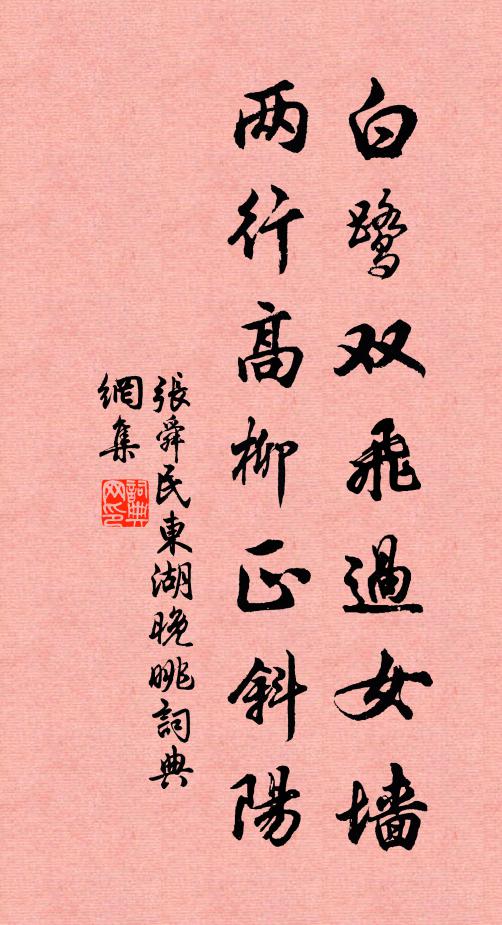 白鹭双飛過女墙
两行高柳正斜陽
張舜民東湖晚眺詞典
網集
詞典网印